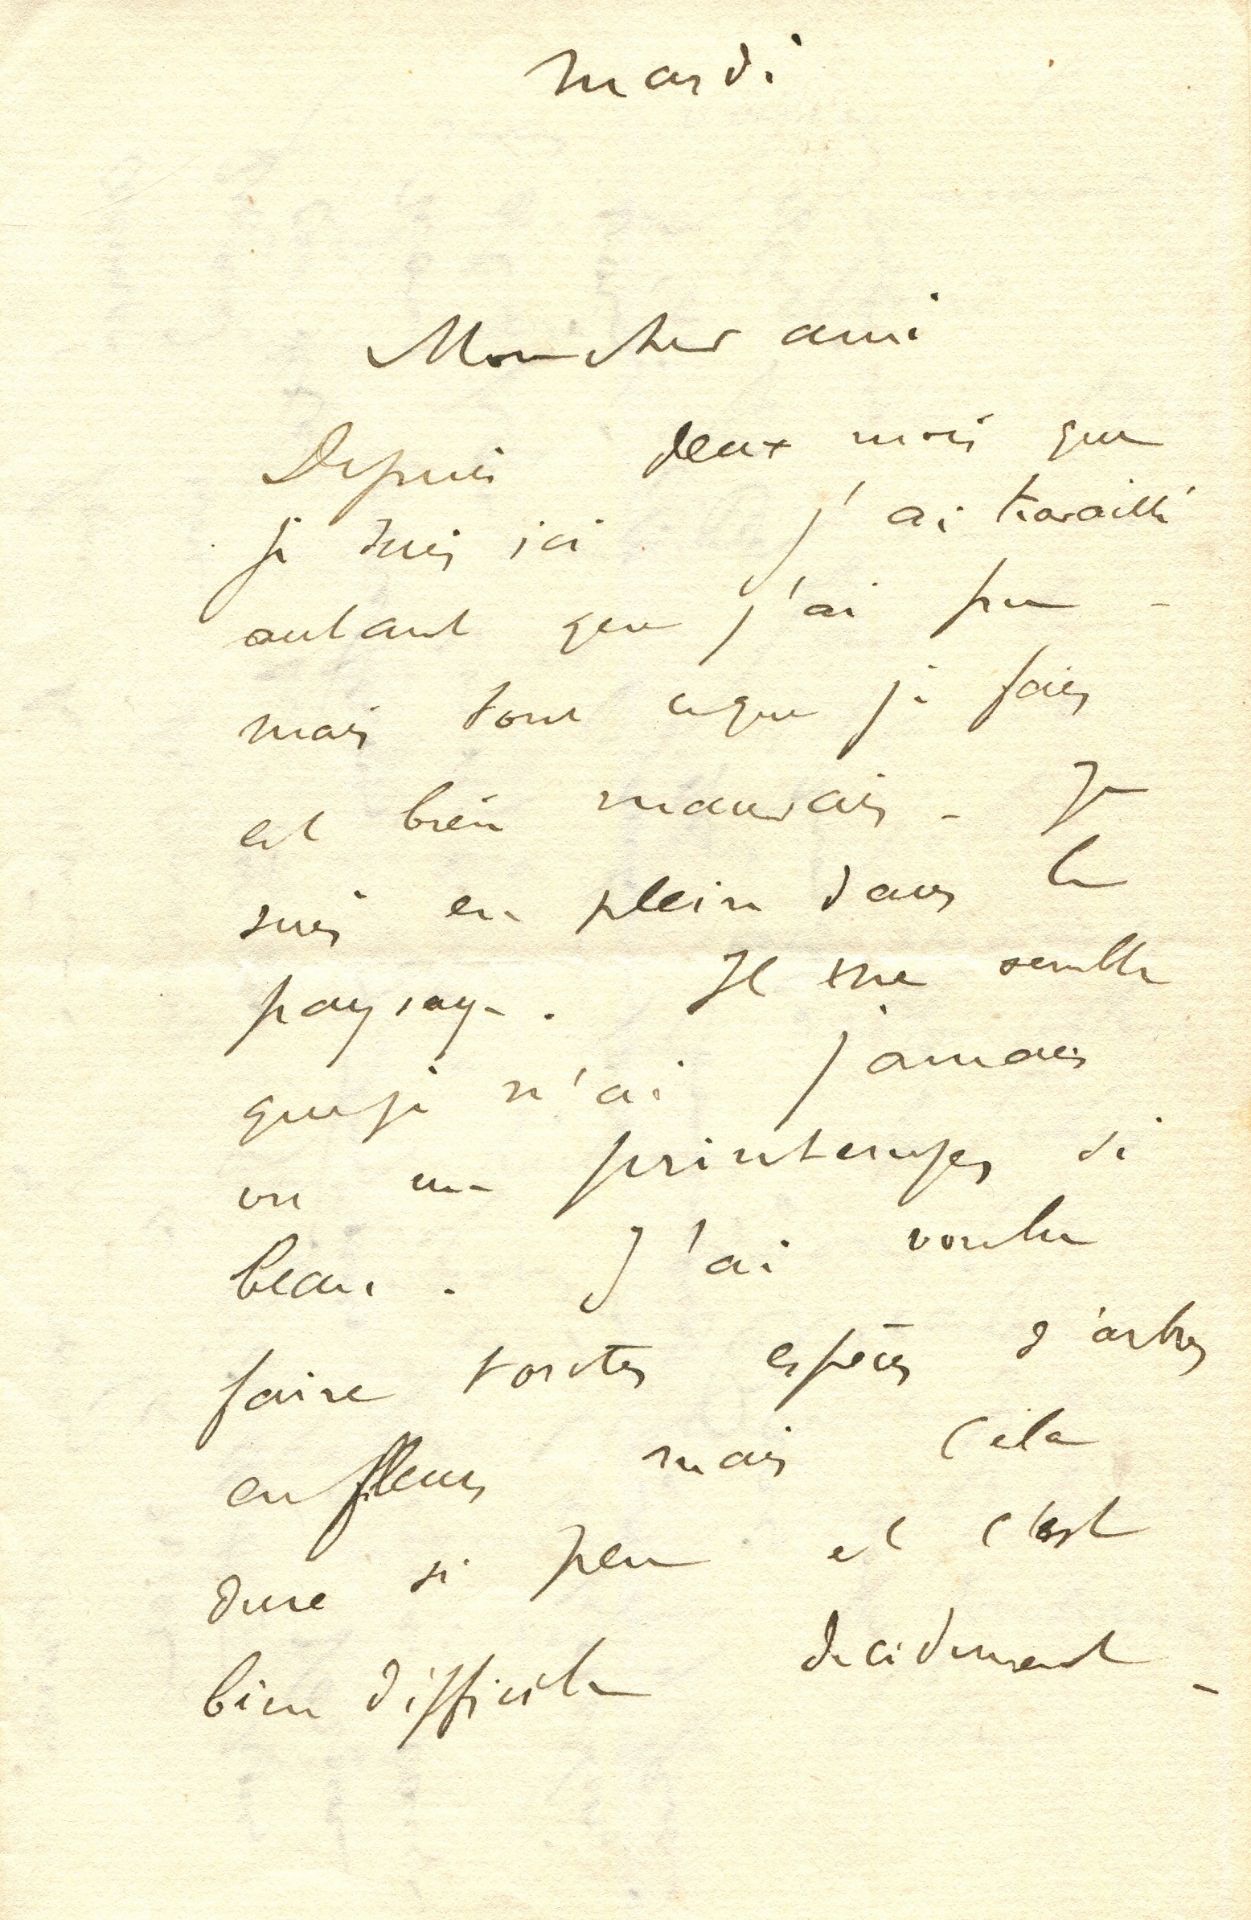 mardi
Mon cher ami
Depuis deux mois que
je suis ici j'ai travaillé
autant que j'ai pu -
mais tout ce que je fais
est bien mauvais - Je
suis en plein dans le
paysage. Il me semble
que je n'ai jamais
vu un printemps si
beau. J'ai voulu
faire toutes espèces d'arbres
en fleurs mais cela
dure si peu et c'est
bien difficile decidement -